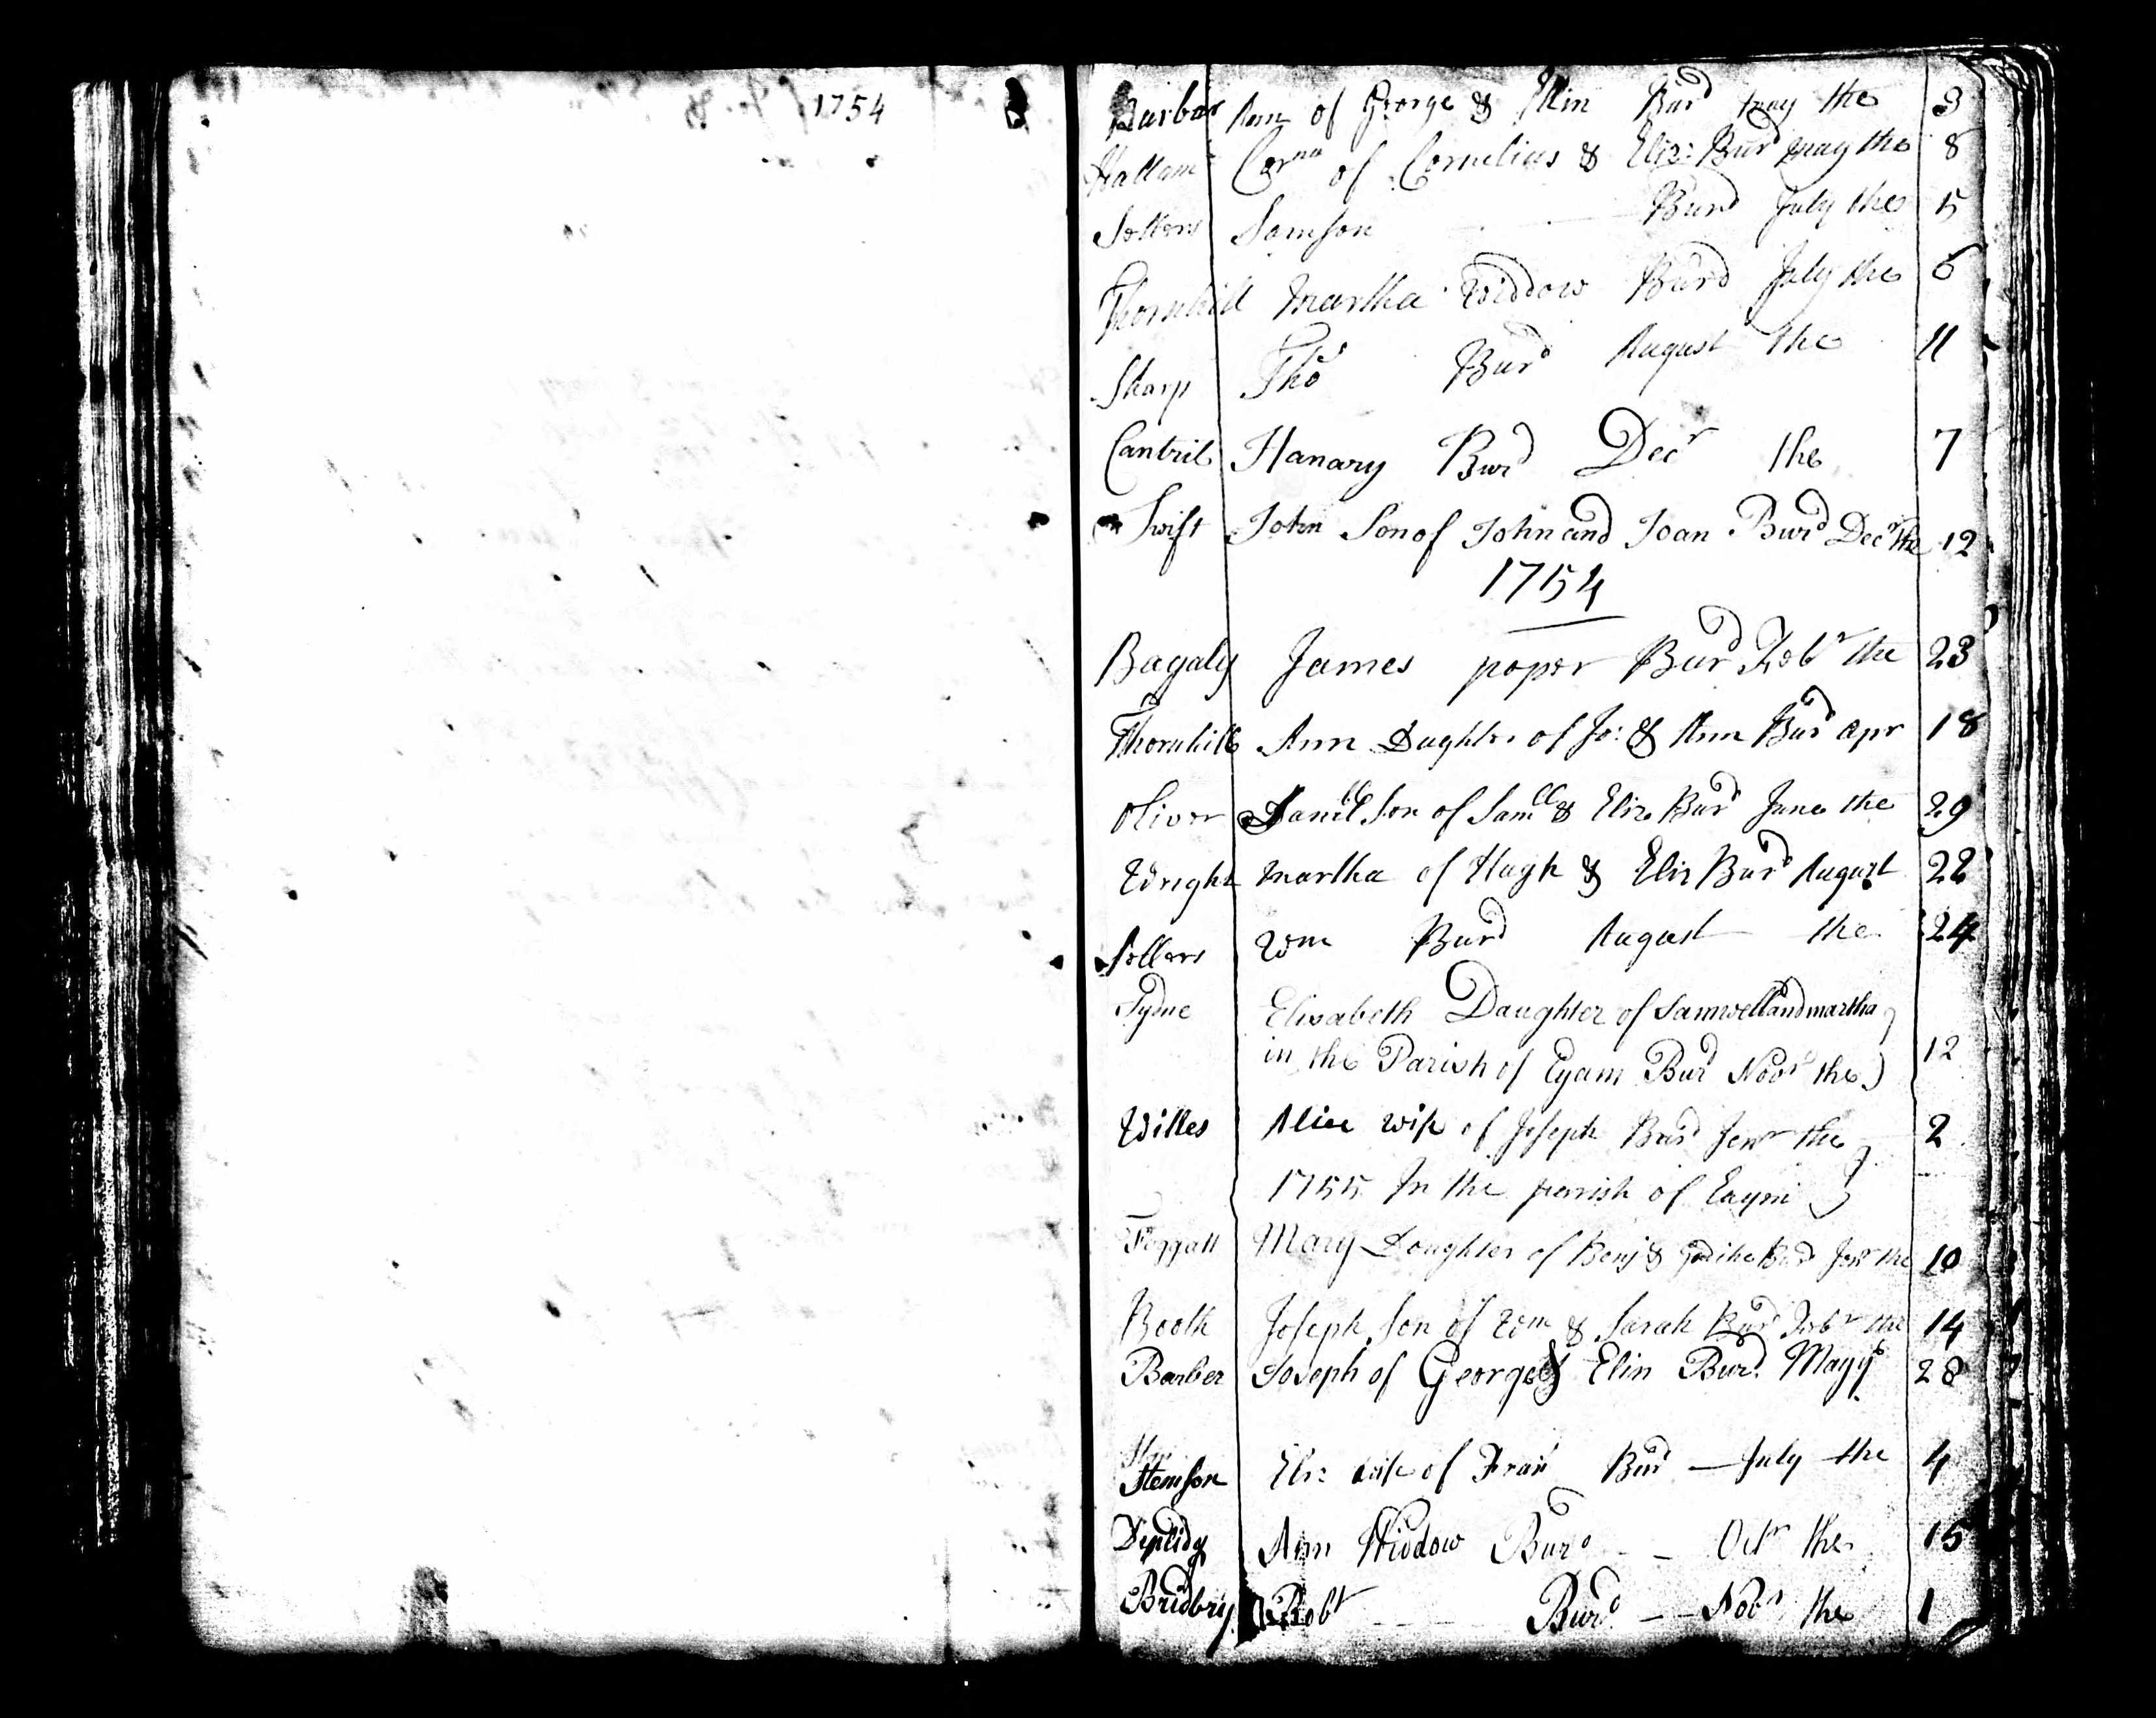 1754
Barbar Ann of George & Elin Burd may the 3
Hallam Corna of Cornelius & Eliz: Burd may the 8
Sellers Samson Burd July the 5
Thornhill Martha Widdow Burd July the 6
Sharp Thos Burd August the 11
Cantril Hanary Burd Decr the 7
Swift John Son of John and Joan Burd Decr the 12
1754
Bagaly James poper Burd Febr the 23
Thornhill Ann Daghter of Jo: & Ann Burd Apr 18
Oliver Samll Son of Samll & Eliz Burd June the 29
Wright martha of Hugh & Eliz Burd August 22
Sellars Wm Burd August the 24
Sydne Elisabeth Daughter of Samwell and martha
in the Parish of Eyam Burd Novr the 12
Willes Alice wife of Joseph Burd Jenr the 2
1755 In the parrish of Eaym
Foggatt Mary Doughter of Benj & Burd Jenr the 10
Booth Joseph Son of Wm & Sarah Burd Febr the 14
Barber Joseph of George & Elin Burd May ye 28
Stemson Eliz wife of Fran Burd — July the 4
Ann Widdow Burd - - Octr the 15
Bridbry Robt - - - Burd - - Nobr the 1